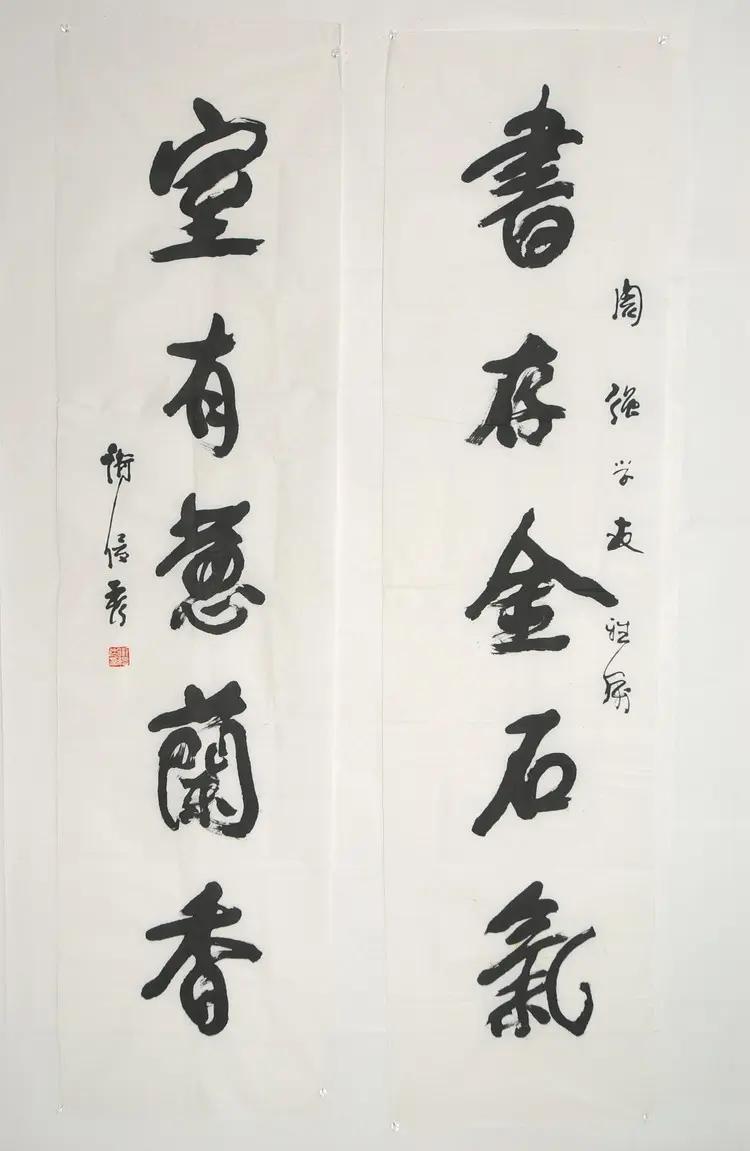 周强学友雅属
書存金石氣
室有蕙蘭香
衛俊秀